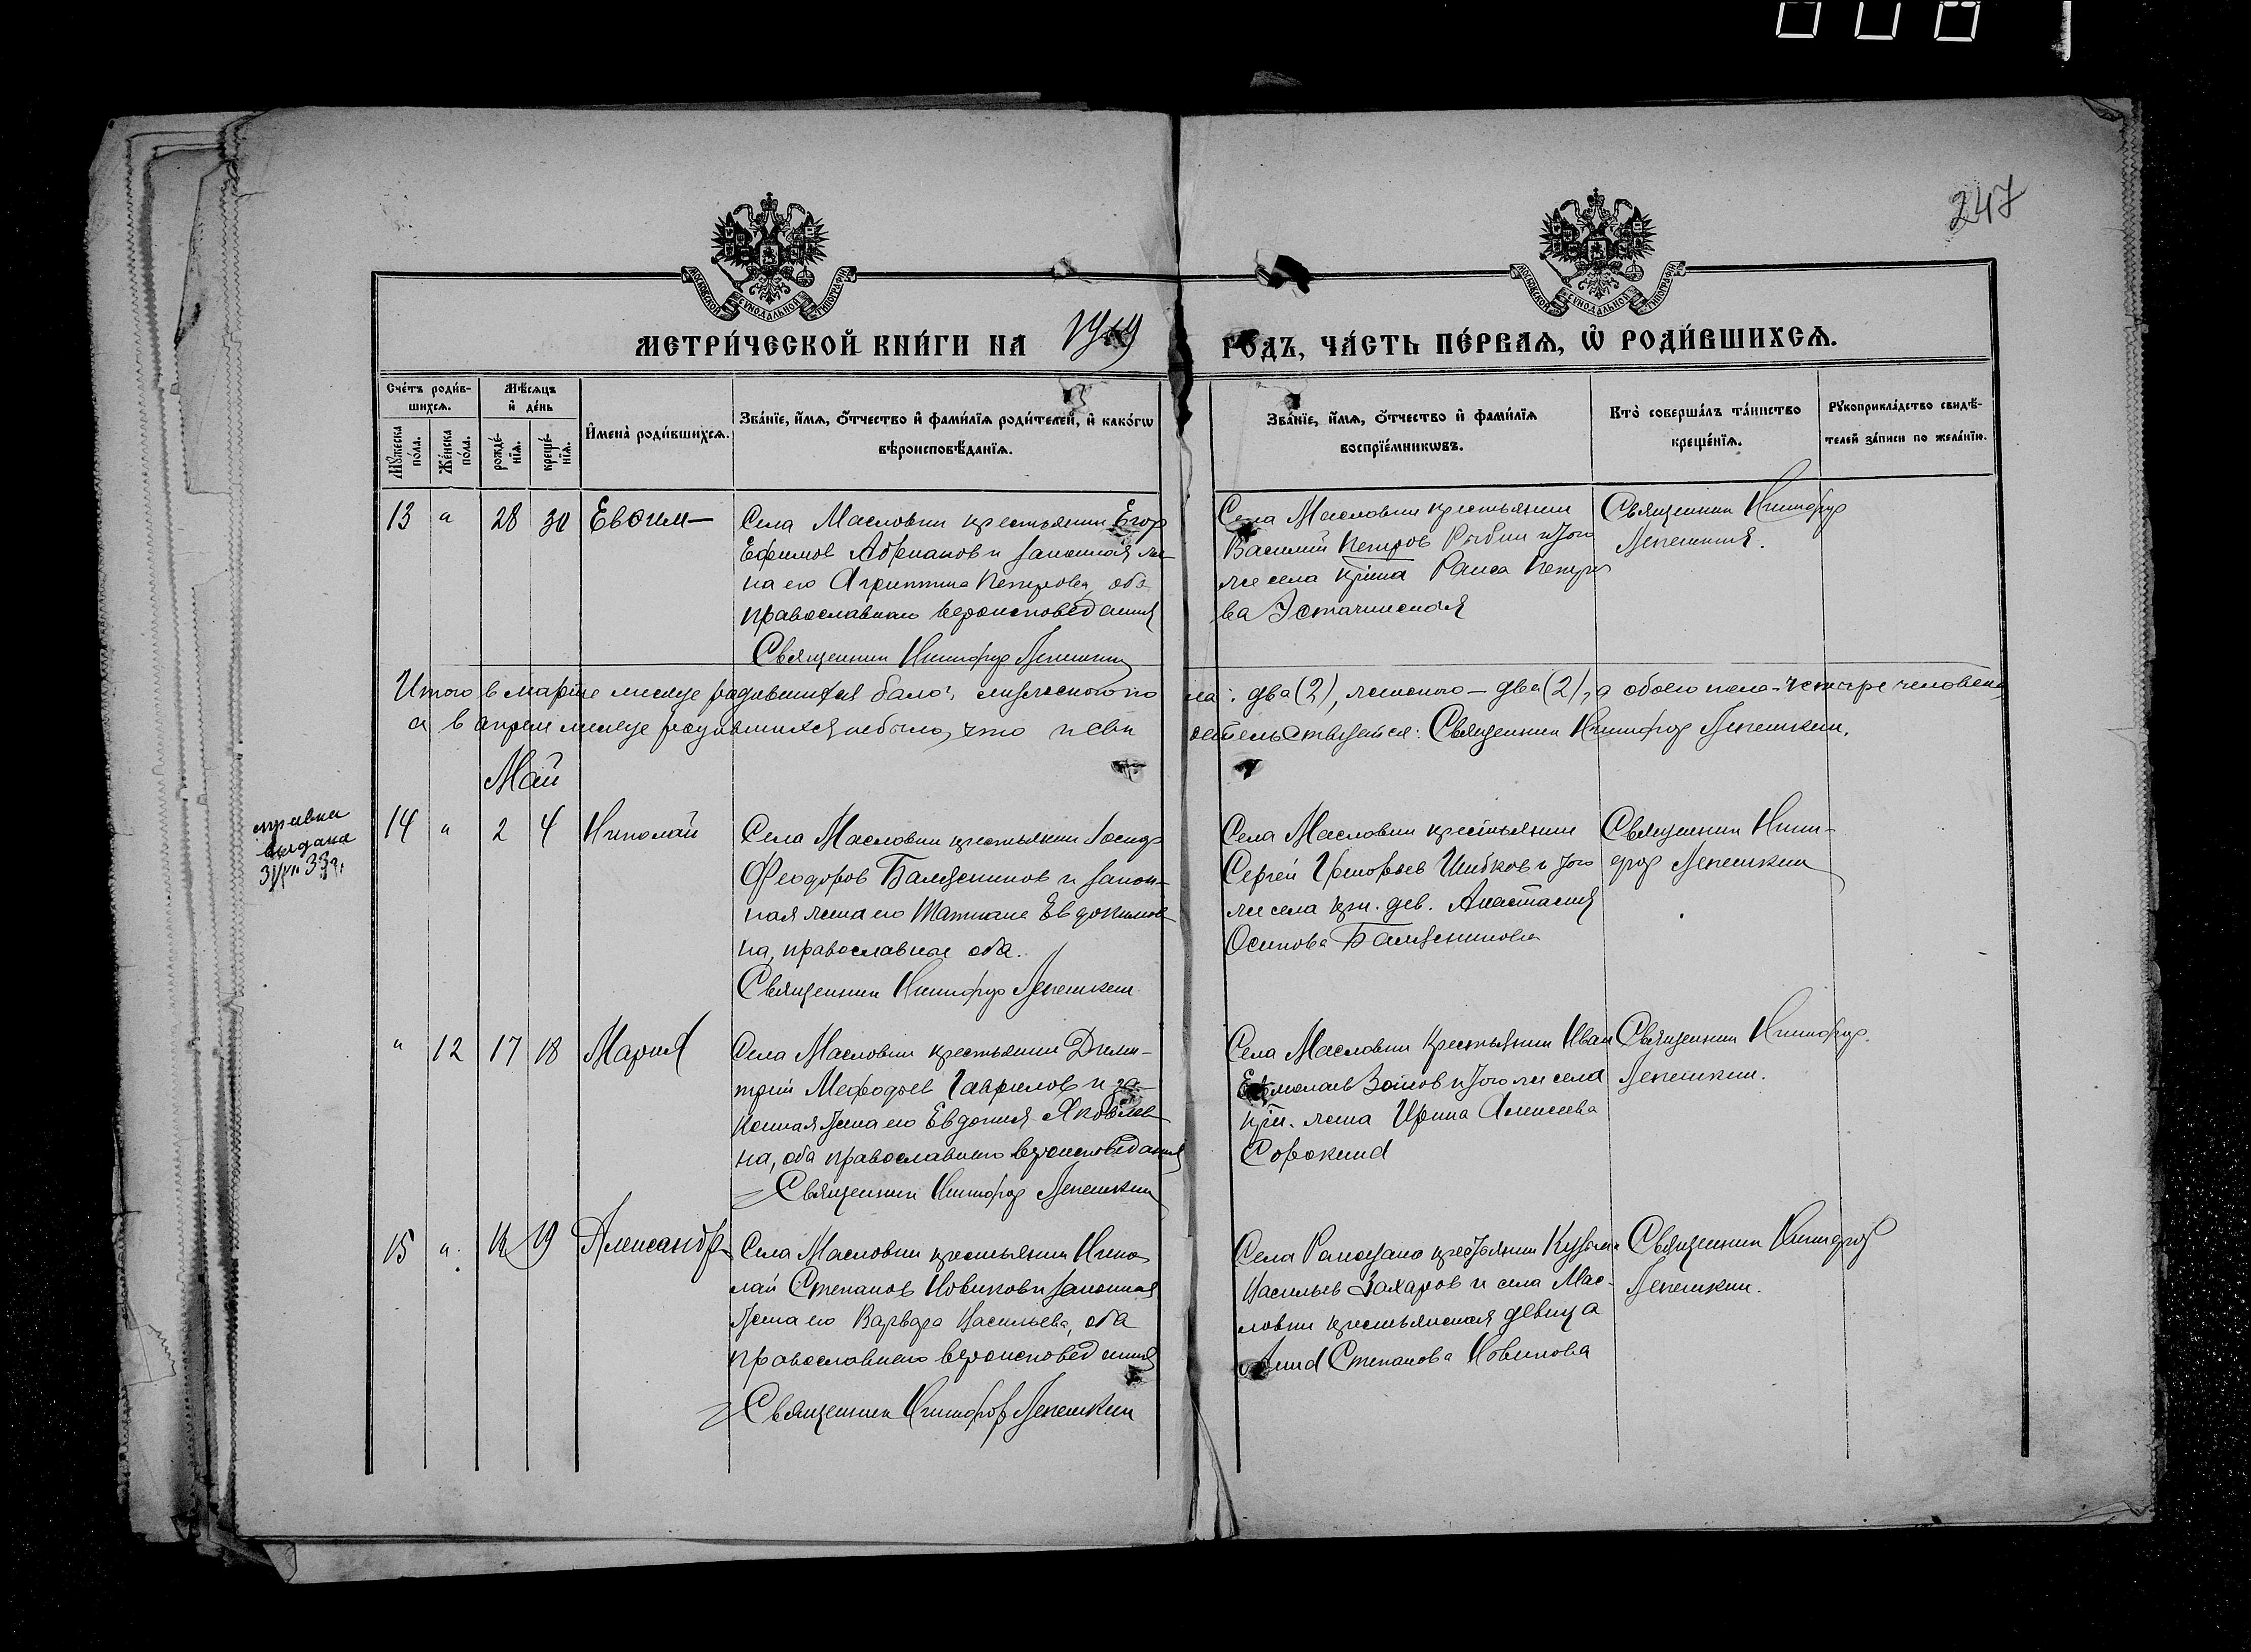 247
МОСКОВСКОЙ СѴНОДАЛЬНОЙ ТИПОГРАФІИ
МОСКОВСКОЙ СѴНОДАЛЬНОЙ ТИПОГРАФІИ
МЕТРИ́ЧЕСКОЙ КНИ́ГИ НА 1919 ГОДЪ, ЧА́СТЬ ПЕ́РВАѦ, Ѡ҆ РОДИ́ВШИХСѦ.
Сче́тъ роди́в-
шихсѧ.
Мꙋ́жеска по́ла.
Же́нска по́ла.
Мѣ́сѧцъ
и҆ де́нь
рожде́-
нїѧ.
креще́-
нїѧ.
И҆мена̀ роди́вшихсѧ.
Зва́нїе, и҆́мѧ, ѻ҆́тчество и҆ фами́лїѧ роди́телей, и҆ како́гѡ
вѣроисповѣ́данїѧ.
Зва́нїе, и҆́мѧ, ѻ҆́тчество и҆ фами́лїѧ
воспрїе́мникѡвъ.
Кто̀ соверша́лъ та́инство
креще́нїѧ.
Рꙋкоприкла́дство свидѣ́-
телей за́писи по жела́нїю.
13 " 28 30 Евѳим
Села Масловки крестьянин Егор
Ефимов Адрианов и законная же-
на его Агриппина Петрова, оба
православнаго вероисповедания
Священник Никифор Лепешкин
Села Масловки крестьянин
Василий Петров Рыбин и того
же села Раиса Петро
ва
Священник Никифор
Лепешкин.
Итого в марте месяце родившихся было: мужеского по ла: два (2), женского – два (2), а обоего пола - четыре человека
а в апреле месяце родившихся не было, что и сви детельствуется: Священник Никифор Лепешкин.
Май
справка
выдана
33 г.
14 " 2 4 Николай
Села Масловки крестьянин
Феодоров Балясников и закон-
ная жена его Татиана Евдокимов-
на, православные оба.
Священник Никифор Лепешкин
Села Масловки крестьянин
Сергей Григорьев Шибков и того
же села кр. дев. Анастасия
Осипова Балясникова
Священник Ники-
фор Лепешкин
" 12 17 18 Мария
Села Масловки крестьянин Дими-
трий Мефодьев Гаврилов и за-
конная жена его Евдокия Яковлев-
на, оба православнаго вероисповедания
Священник Никифор Лепешкин
Села Масловки Крестьянин Иван
Ермолаев Зотов и того же села
кр. жена Ирина Алексеева
Сорокина
Священник Никифор
Лепешкин.
15 " 18 19 Александр
Села Масловки крестьянин Нико-
лай Степанов Новиков и законная
жена его Варвара Васильева, оба
православнаго вероисповедания
Священник Никифор Лепешкин
Села крестьянин Кузьма
Васильев Захаров и села Мас-
ловки крестьянская девица
Анна Степанова Новикова
Священник Никифор
Лепешкин.